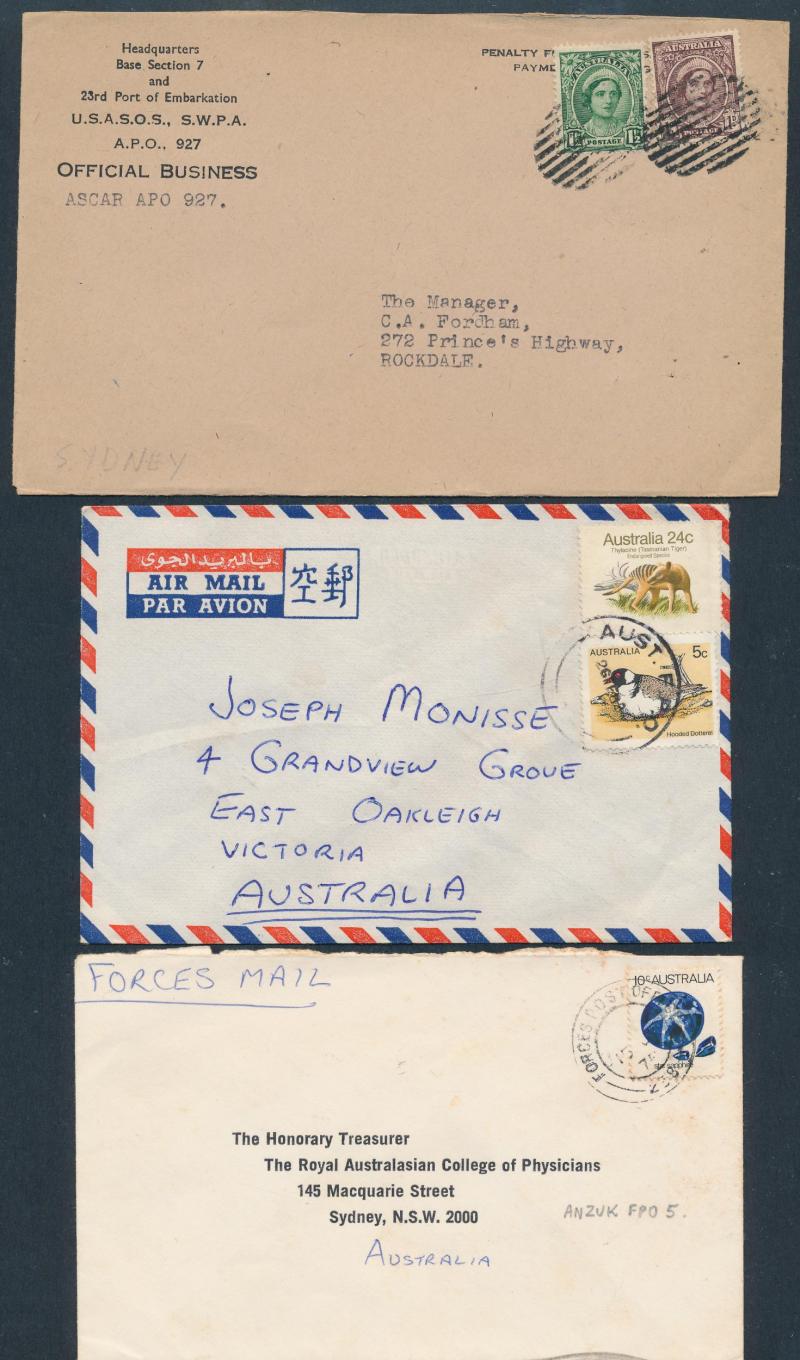 Headquarters
Base Section 7
and
23rd Port of Embarkation
U.S.A.S.O.S., S.W.P.A.
A.P.O., 927
OFFICIAL BUSINESS
ASCAR APO 927.
PENALTY
PAYME
AUSTRALIA
1½ POSTAGE 1½
AUSTRALIA
POSTAGE 1D
The Manager,
C.A. Fordham,
272 Prince's Highway,
ROCKDALE.
SYDNEY
بالبريد الجوى
AIR MAIL
PAR AVION
空郵
Australia 24c
Thylacine (Tasmanian Tiger)
Endangered Species
AUSTRALIA 5c
Hooded Dotterel
AUST. F.P.O.
JOSEPH MONISSE
4 GRANDVIEW GROVE
EAST OAKLEIGH
VICTORIA
AUSTRALIA
FORCES MAIL
10c AUSTRALIA
star sapphire
FORCES POST OFF
The Honorary Treasurer
The Royal Australasian College of Physicians
145 Macquarie Street
Sydney, N.S.W. 2000
ANZUK FPO 5.
AUSTRALIA